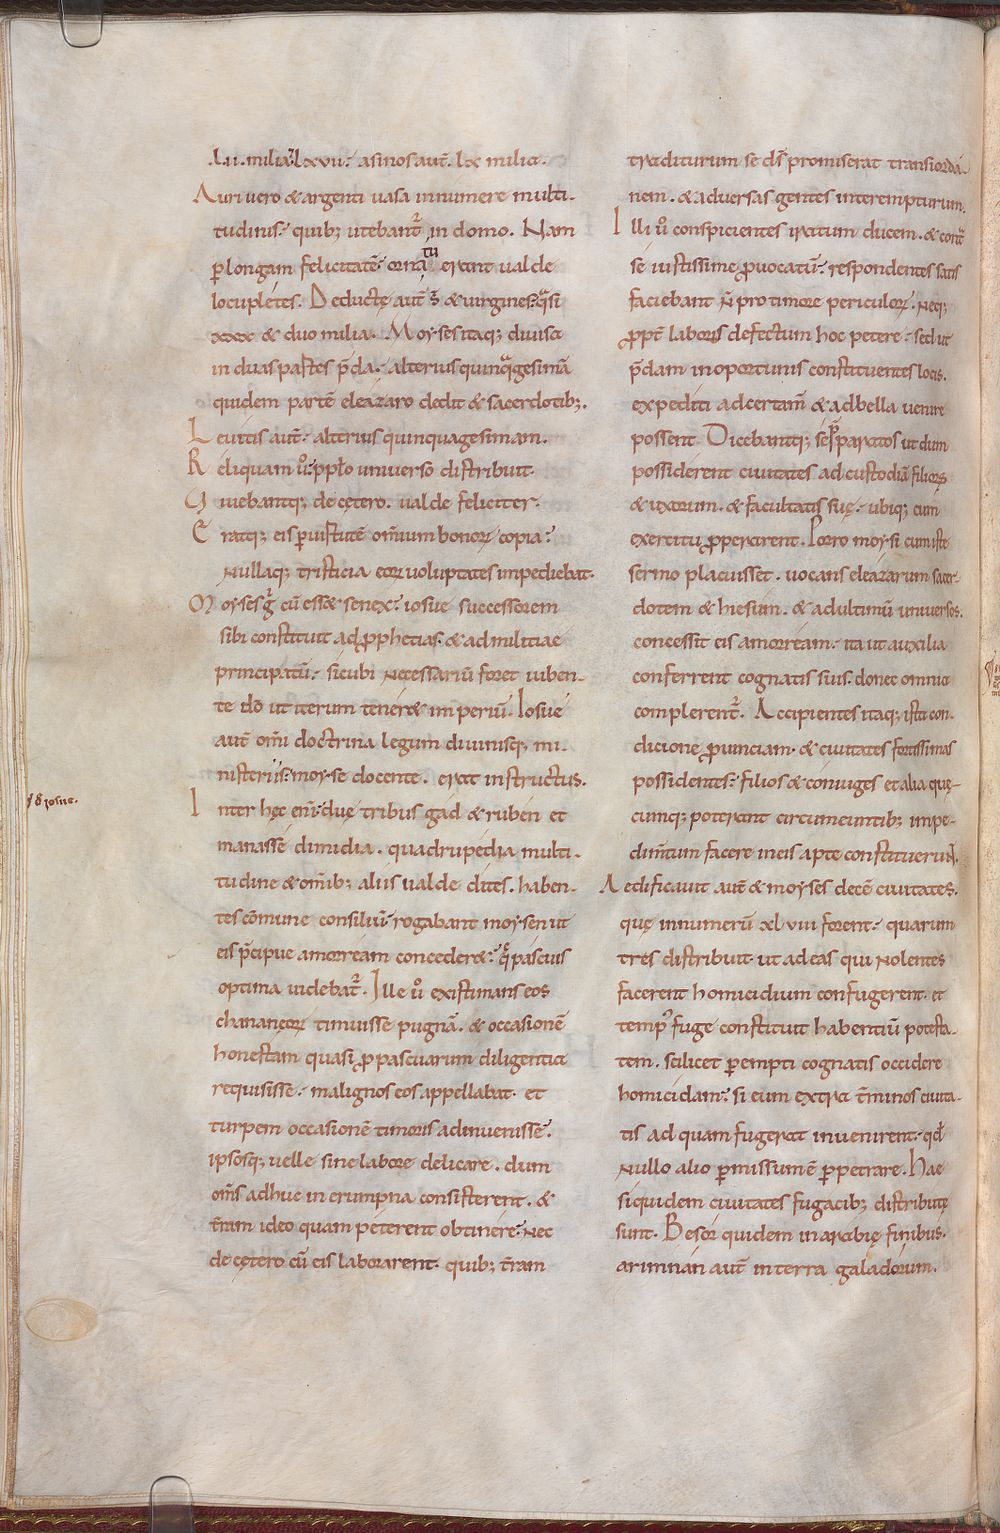 .Lii. milia. lxvii. asinos aut̄. lx milia.
Auri uero & argenti uasa innumere multi-
tudinis. quib; utebant᷑ in domo. Nam
p̱ longam felicitatē. ornatu erant ualde
locupletes. Deductę aut̄ s̄ & uirgines. q̱si
xxx & duo milia. Moyses itaq; diuisa
in duas partes p̄da. alterius quinq̱gesimā
quidem partē eleazaro dedit & sacerdotib;.
Leuitis aut̄. alterius quinquagesimam.
Reliquam u̇o. ppl̄o uniuerso distribuit.
Viuebantq; de cętero. ualde feliciter.
Eratq; eis p̱ uirtutē om̄ium bonoꝝ copia.
Nullaq; tristicia eoꝝ uoluptates impediebat.
Moyses g̊ cū ess& senex. iosue successorem
sibi constituit ad ꝓphetias. & ad militiae
principatū. sicubi necessariū foret iuben-
te dō ut iterum teneret imperiū. Iosue
aut̄ om̄i doctrina legum diuinisq; mi-
nisteriis. moyse docente. erat instructus.
Inter hęc eni̅. duę tribus gad & ruben et
manasse dimidia. quadrupedia multi-
tudine & om̄ib; aliis ualde dites. haben-
tes cōmune consiliū. rogabant moysen ut
eis p̄cipue amorream conceder&. q̱ pascuis
optima uidebat᷑. Ille u̇o existimans eos
chananeoꝝ timuisse pugnā. & occasionē
honestam quasi ꝓ pascuarum diligentia
requisisse. malignos eos appellabat. et
turpem occasionē timoris adinuenisse.
ipsosq; uelle sine labore delicare. dum
om̄s adhuc in erumpna consisterent. &
t̄ram ideo quam peterent obtinere. Nec
de cętero cū eis laborarent. quib; t̄ram
traditurum se ds̄ promiserat transiordā-
nem. & aduersas gentes interempturum.
Illi u̇o conspicientes iratum ducem. & cont̄
se iustissime ꝓuocatū. respondentes satis
faciebant n̄ pro timore periculoꝝ. Neq;
ꝓpt̄ laboris defectum hoc petere. sed ut
p̄dam in oportunis constituentes locis.
expediti ad certam̄ & ad bella uenire
possent. Dicebantq; se p̄paratos ut dum
possiderent ciuitates ad custodiā filioꝝ
& uxorum. & facultatis suę. ubiq; cum
exercitu ꝓpperarent. Porro moysi cum iste
sermo placuisset. uocans eleazarum sacer-
dotem & hiesum. & ad ultimū uniuersos.
concessit eis amorream. ita ut auxilia
conferrent cognatis suis. donec omnia
complerent᷑. Accipientes itaq; ista con-
dicione ꝓuinciam. & ciuitates fortissimas
possidentes. filios & coniuges et alia quę-
cumq; poterant circumeuntib; impe-
dim̄tum facere in eis apte constituerunt.
Aedificauit aut̄ & moyses decē ciuitates.
quę in numerū xl viii forent. quarum
tres distribuit. ut ad eas qui nolentes
facerent homicidium confugerent. et
temp᷒ fuge constituit habentiū potesta-
tem. scilicet p̱empti cognatis occidere
homicidam. si eum extra t̄minos ciuita-
tis ad quam fugerat inuenirent. qd̄
nullo alio p̱missum ē p̱petrare. Hae
siquidem ciuitates fugacib; distributę
sunt. Besor quidem in arabię finibus.
arimnan aut̄ in terra galadorum.
iosue.